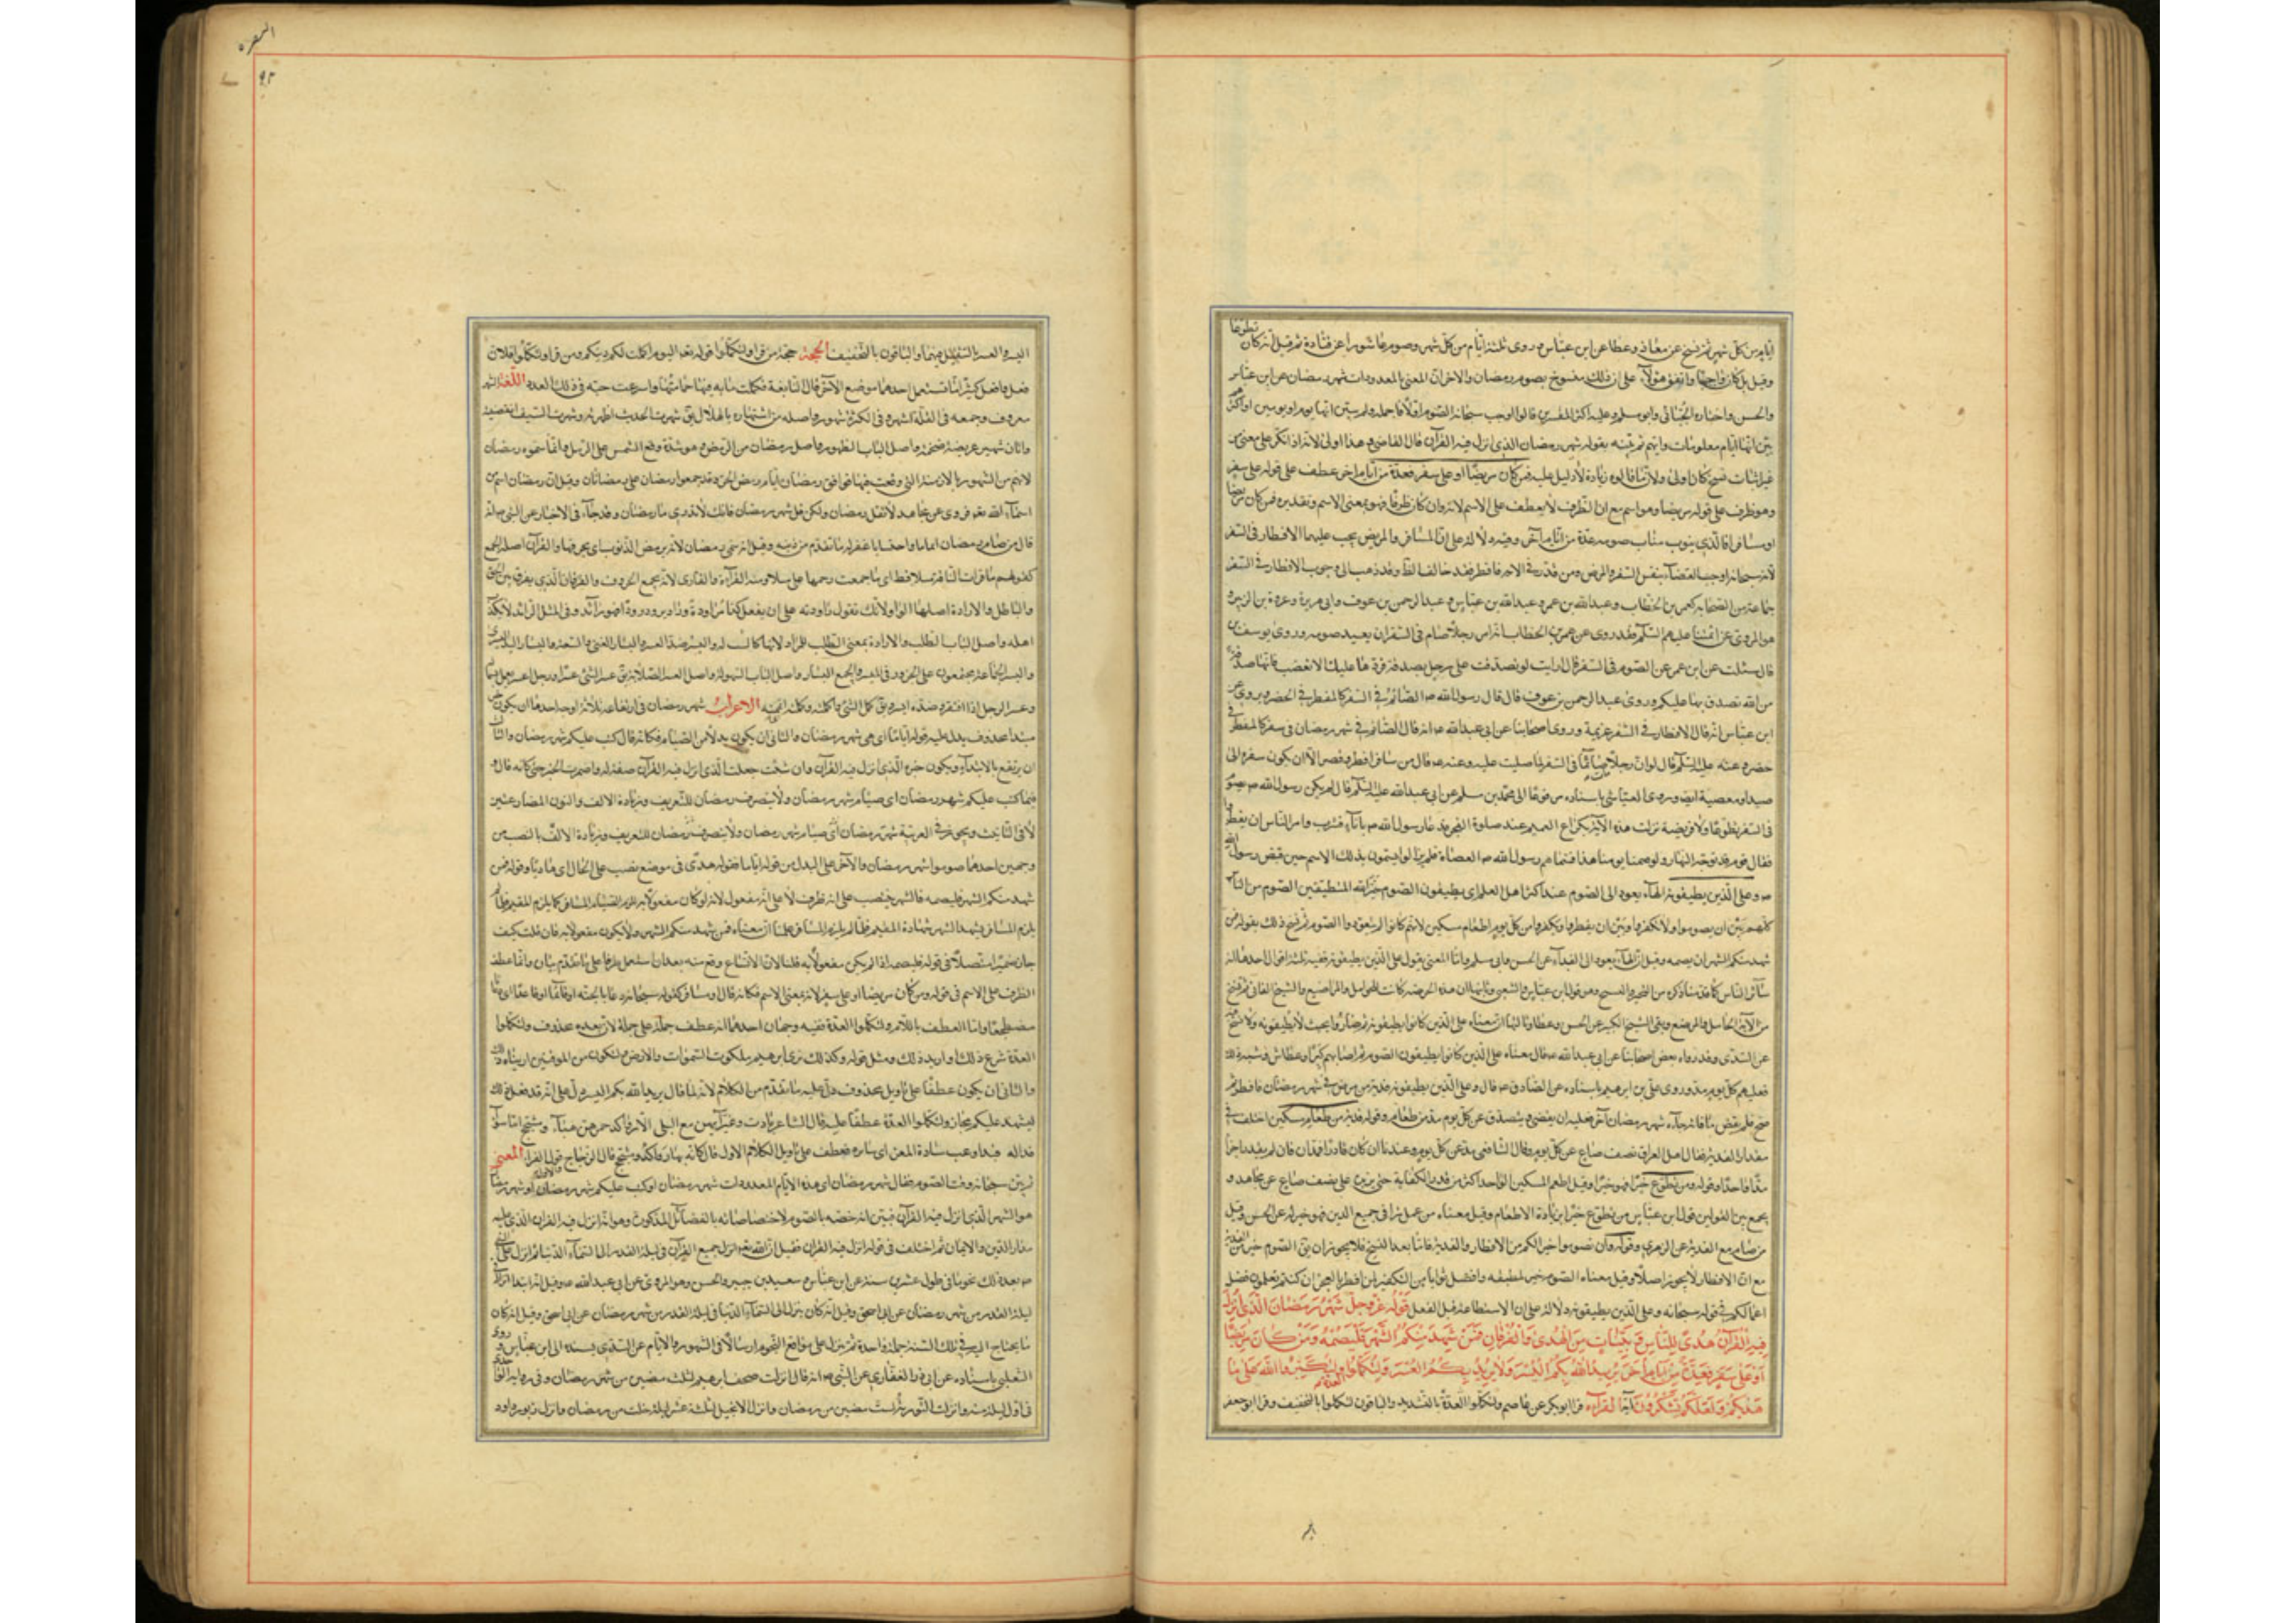 ايام من كل شهر ثم نسخ عن معاذ وعطا عن ابن عباس وروى ثلثة ايام من كل شهر وصوم عاشورا عن قتادة ثم قيل انه كان تطوعا
وقيل بل كان واجبا واتفق هؤلاء على ان ذلك منسوخ بصوم رمضان والاخر ان المعنى بالمعدودات شهر رمضان عن ابن عباس
والحسن واختاره الجبائى وابو مسلم وعليه اكثر المفسرين قالوا اوجب سبحانه الصوم اولا فاجمله ولم يبين انها يوم او يومين او اكثر ثم
بين انها ايام معلومات وابهم ثم بينه بقوله شهر رمضان الذى انزل فيه القرآن قال القاضى وهذا اولى لانه اذا امكن على معنى من
غير اثبات نسخ كان اولى ولان ما قالوه زيادة لا دليل عليه فمن كان مريضا او على سفر فعدة من ايام اخر عطف على قوله على سفر
وهو ظرف على قوله مريضا وهو اسم مع ان الظرف لا يعطف على الاسم لانه وان كان ظرفا فهو بمعنى الاسم وتقديره فمن كان مريضا
او مسافرا فالذى ينوب مناب صومه عدة من ايام اخر وفيه دلالة على ان المسافر والمريض يجب عليهما الافطار
لانه سبحانه اوجب القضاء بنفس السفر والمرض ومن قدر فى الاية فافطر فقد خالف الظ وقد ذهب الى وجوب الافطار فى السفر
جماعة من الصحابة كعمر بن الخطاب وعبد الله بن عمر وعبد الله بن عباس وعبد الرحمن بن عوف وابى هريرة وعروة بن الزبير و
هو المروى عن ائمتنا عليهم السلم فقد روى عن عمر بن الخطاب انه امر رجلا صام فى السفر ان يعيد صومه وروى يوسف بن
قال سئلت عن ابن عمر عن الصوم فى السفر قال ارايت لو تصدقت على رجل بصدقة فردها عليك الا تغضب فانها صدقة
من الله تصدق بها عليكم وروى عبد الرحمن بن عوف قال قال رسول الله ص الصائم فى السفر كالمفطر فى الحضر وروى عن
ابن عباس انه قال الافطار فى السفر عزيمة وروى اصحابنا عن ابى عبد الله ع انه قال الصائم فى شهر رمضان فى سفر كالمفطر فى
حضره وعنه عليه السلم قال لو ان رجلا صائما فى السفر ما صليت عليه وعنه ع قال من سافر افطر وقصر الا ان يكون سفره الى
صيد او معصية وروى العياشى باسناده مرفوعا الى محمد بن مسلم عن ابى عبد الله عليه السلم قال لم يكن رسول الله ص يصوم
فى السفر تطوعا ولا فريضة نزلت هذه الاية بكراع الغميم عند صلوة الفجر فدعا رسول الله ص باناء فشرب وامر الناس ان يفطروا
فقال قوم قد توجه النهار ولو صمنا يومنا هذا فسماهم رسول الله ص العصاة فلم يزالوا يسمون بذلك الاسم حين قبض رسول الله
ص وعلى الذين يطيقونه الهاء يعود الى الصوم عند اكثر اهل العلم اى يطيقون الصوم خير الله المطيقين الصوم من الناس
كلهم بين ان يصوموا ولا يكفروا وبين ان يفطروا ويكفروا من كل يوم اطعام مسكين لانهم كانوا لم يتعودوا الصوم ثم نسخ ذلك بقوله فمن
شهد منكم الشهر فليصمه وقيل ان الهاء يعود الى الفداء عن الحسن وابى مسلم واما المعنى بقول على الذين يطيقونه ففيه ثلثة اقوال احدها انه
سائر الناس كما قدمنا ذكره من التخيير والنسخ بعده وهو قول ابن عباس والشعبى وثانيها ان هذه الرخصة كانت للحوامل والمراضيع والشيخ الفانى ثم نسخ
من الاية الحامل والمرضع وبقى الشيخ الكبير عن الحسن وعطا وثالثها ان معناه على الذين كانوا يطيقونه ثم صاروا بحيث لا يطيقونه ولا نسخ فيه
عن السدى وقد رواه بعض اصحابنا عن ابى عبد الله ع قال معناه على الذين كانوا يطيقون الصوم ثم اصابهم كبر او عطاش وشبه ذلك
فعليهم كل يوم مد وروى على بن ابرهيم باسناده عن الصادق ع قال وعلى الذين يطيقونه فدية من مرض فى شهر رمضان فافطر ثم
صح فلم يقض ما فاته حتى جاء شهر رمضان آخر فعليه ان يقضى ويتصدق عن كل يوم مدا من طعام وقوله فدية من طعام مسكين اختلف فى
مقدار الفدية فقال اهل العراق نصف صاع عن كل يوم وقال الشافعى مد عن كل يوم وعندنا ان كان قادرا فمدان فان لم يقدر اجزأه
مد واحد وقوله ومن تطوع خيرا فهو خير له وقيل اطعم المسكين الواحد اكثر من قدر الكفاية حتى يزيد على نصف صاع عن مجاهد و
يجمع بين القولين قول ابن عباس من تطوع خيرا بزيادة الاطعام وقيل معناه من عمل برا فى جميع الدين فهو خير له عن الحسن وقيل
من صام مع الفدية عن الزهرى وقوله وان تصوموا خير لكم من الافطار والفدية فاما بعد النسخ فلا يجوز ان بق الصوم خير من الفدية
مع ان الافطار لا يجوز اصلا وقيل معناه الصوم خير لمطيقه وافضل ثوابا من التكفير لمن افطر بالعجز ان كنتم تعلمون فضل
اعمالكم فى قوله سبحانه وعلى الذين يطيقونه دلالة على ان الاستطاعة قبل الفعل قوله عز وجل شهر رمضان الذى انزل
فيه القرآن هدى للناس وبينات من الهدى والفرقان فمن شهد منكم الشهر فليصمه ومن كان مريضا
او على سفر فعدة من ايام اخر يريد الله بكم اليسر ولا يريد بكم العسر ولتكملوا العدة ولتكبروا الله على ما
هديكم ولعلكم تشكرون آية القراءة قرا ابو بكر عن عاصم ولتكملوا العدة بالتشديد والباقون لتكملوا بالتخفيف وقرا ابو جعفر
البقرة
٩٢
اليسر والعسر بالتثقيل فيهما والباقون بالتخفيف الحجة حجة من قرا ولتكملوا قوله تعه اليوم اكملت لكم دينكم ومن قرا ولتكملوا فلان
فعل وافعل كثيرا ما تستعمل احدهما موضع الآخر قال النابغة فكملت مائة فيها حمامتها واسرعت حسبة فى ذلك العدد اللغة الشهر
معروف وجمعه فى القلة اشهر وفى الكثرة شهور واصله من اشتهاره بالهلال يق شهرت الحديث اظهرته وشهرت السيف انتضيته
واتان شهيرة عريضة ضخمة واصل الباب الظهور واصل رمضان من الرمض وهو شدة وقع الشمس على الرمل وانما سموه رمضان
لانهم سموا الشهور بالازمنة التى وقعت فيها فوافق رمضان ايام رمض الحر وقد جمعوا رمضان على رمضانات وقيل ان رمضان اسم من
اسماء الله تعه فروى عن مجاهد لا تقل رمضان ولكن قل شهر رمضان فانك لا تدرى ما رمضان وقد جاء فى الاخبار عن النبى ص انه
قال من صام رمضان ايمانا واحتسابا غفر له ما تقدم من ذنبه وقيل انه سمى رمضان لانه يرمض الذنوب اى يحرقها والقرآن اصله الجمع
كقولهم ما قرات الناقة سلا قط اى ما جمعت رحمها على سلا ومنه القراءة والقارى لانه يجمع الحروف والفرقان الذى يفرق بين الحق
والباطل والارادة اصلها الواو لانك تقول راودته على ان يفعل كذا مراودة وراد يرود رودا فهو رائد وفى المثل الرائد لا يكذب
اهله واصل الباب الطلب والارادة بمعنى الطلب للمراد لانها كالسبب له واليسر ضد العسر واليسار الغنى والسعة واليسار اليد اليسرى
واليسر الجماعة يجتمعون على الجزور فى الميسر والجمع ايسار واصل الباب السهولة واصل العسر الصلابة يق عسر الشئ عسرا ورجل اعسر يعمل بشماله
وعسر الرجل اذا افتقر وضده ايسر يق كمل الشئ واكملته وكملته اتممته الاعراب شهر رمضان فى ارتفاعه ثلاثة اوجه احدها ان يكون خبر
مبتدا محذوف يدل عليه قوله اياما اى هى شهر رمضان والثانى ان يكون بدلا من الصيام فكانه قال كتب عليكم شهر رمضان والثالث
ان يرتفع بالابتداء ويكون خبره الذى انزل فيه القرآن وان شئت جعلت الذى انزل فيه القرآن صفة له واضمرت الخبر حتى كانه قال و
فيما كتب عليكم شهر رمضان اى صيام شهر رمضان ولا ينصرف رمضان للتعريف وزيادة الالف والنون المضارعتين
لالفى التانيث ويجوز فى العربية شهر رمضان اى صيام شهر رمضان ولا ينصرف رمضان للتعريف وزيادة الالف بالنصب من
وجهين احدهما صوموا شهر رمضان والآخر على البدل من قوله اياما فقوله هدى فى موضع نصب على الحال اى هاديا وقوله فمن
شهد منكم الشهر فليصمه فالشهر ينتصب على انه ظرف لا على انه مفعول لانه لو كان مفعولا به لزم الصيام المسافر كما يلزم المقيم
يلزم المسافر يشهد الشهر شهادة المقيم فلما لم يلزم المسافر علمنا ان معناه فمن شهد منكم المصر فى الشهر ولا يكون مفعولا به فان قلت كيف
جاز ضميره متصلا فى قوله فليصمه اذا لم يكن مفعولا به قلنا لان الاتساع وقع منه بعد ان استعمل ظرفا على ما تقدم بيانه وانما عطف
الظرف على الاسم فى قوله ومن كان مريضا او على سفر لانه بمعنى الاسم فكانه قال او مسافرا كقوله سبحانه دعانا لجنبه او قاعدا او قائما اى دعانا
مضطجعا واما العطف باللام ولتكملوا العدة ففيه وجهان احدهما انه عطف جملة على جملة لان بعده محذوف ولتكملوا
العدة شرع ذلك او اريد ذلك ومثل قوله وكذلك نرى ابرهيم ملكوت السموات والارض وليكون من الموقنين اريناه ذلك
والثانى ان يكون عطفا على تاويل محذوف دل عليه ما تقدم من الكلام لانه لما قال يريد الله بكم اليسر دل على انه قد فعل ذلك
ليسهل عليكم فجاز ولتكملوا العدة عطفا عليه قال الشاعر بادت وغير آيهن مع البلى الا رواكد جمرهن هباء ومشجج اما سواء
قذاله فبدا وغيب سارة المعز اى سائره فعطف على تاويل الكلام الاول قال كانه بها رواكد ومشجج قال الزجاج قول الفراء المعنى
ثم بين سبحانه وقت الصوم فقال شهر رمضان اى هذه الايام المعدودات شهر رمضان او كتب عليكم شهر رمضان او شهر رمضان
هو الشهر الذى انزل فيه القرآن فبين انه خصه بالصوم لاختصاصه بالفضائل المذكورة وهو انه انزل فيه القرآن الذى عليه
مدار الدين والايمان ثم اختلف فى قوله انزل فيه القرآن فقيل ان الله تعه انزل جميع القرآن فى ليلة القدر الى السماء الدنيا ثم انزل على النبى
ص بعد ذلك نجوما فى طول عشرين سنة عن ابن عباس وسعيد بن جبير والحسن وهو المروى عن ابى عبد الله ع وقيل انه ابتدا انزاله
ليلة القدر من شهر رمضان عن ابى اسحق وقيل انه كان ينزل الى السماء الدنيا فى ليلة القدر من شهر رمضان عن ابى اسحق وقيل انه كان
ما يحتاج اليه فى تلك السنة جملة واحدة ثم ينزل على مواقع النجوم ارسالا فى الشهور والايام عن السدى يسنده الى ابن عباس وروى
الثعلبى باسناده عن ابى ذر الغفارى عن النبى ص انه قال انزلت صحف ابرهيم لثلث مضين من شهر رمضان وفى رواية الواحدى
فى اول ليلة منه وانزلت التورية لست مضين من رمضان وانزل الانجيل لثلث عشر ليلة خلت من رمضان وانزل زبور داود